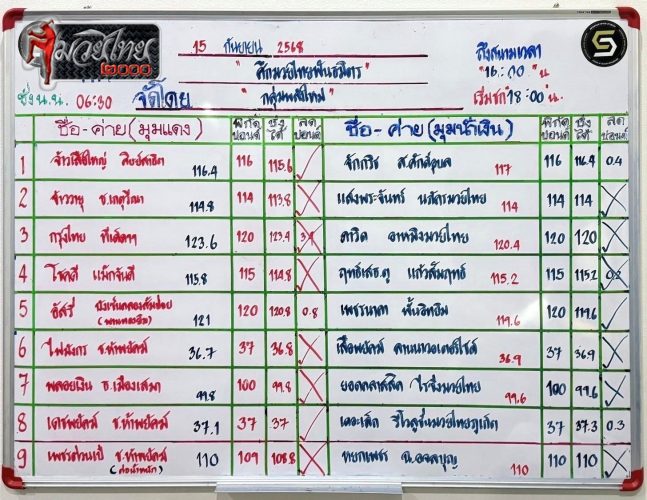 มวยไทย
๒๐๐๐
15 กันยายน 2568
" ศึกมวยไทยพันธมิตร "
" กลุ่มพลังใหม่ "
ถึงสนามเวลา
"16:00" น.
เริ่มชก 18:00 น.
ชั่ง น.น. 06:30 จัดโดย
ชื่อ-ค่าย (มุมแดง) พิกัด ปอนด์ ชั่ง ได้ ลด ปอนด์ ชื่อ-ค่าย (มุมน้ำเงิน) พิกัด ปอนด์ ชั่ง ได้ ลด ปอนด์
1 จ้าวเสือใหญ่ 116.4 116 115.6 จักกริช ส.ศักดิ์อุบล 117 116 116.4 0.4
2 จ้าววายุ ช.เกตุวีณา 114.8 114 113.8 แสงพระจันทร์ นภัครมวยไทย 114 114 114
3 กรุงไทย ทีเด็ด99 123.6 120 123.4 3.4 ดาวิด อาหมิงมวยไทย 120.4 120 120
4 โชคดี แม็กจันดี 115.8 115 114.8 ฤทธิ์เดช.ตู แก้วสัมฤทธิ์ 115.2 115 115.2 0.2
5 อัสรี่ 121 120 120.8 0.8 เพชรนาคา 119.6 120 119.6
6 ไฟมังกร ช.ห้าพยัคฆ์ 36.7 37 36.8 เสือพยัคฆ์ ลานนาวอเตอร์ไซด์ 36.9 37 36.9
7 พลอยเงิน ธ.เมืองเสมา 99.8 100 99.8 ยอดคลาสสิค ไรซิ่งมวยไทย 99.6 100 99.6
8 เดชพยัคฆ์ ช.ห้าพยัคฆ์ 37.1 37 37 เดอะเล็ก รีโวลูชั่นมวยไทยภูเก็ต 37 37.3 0.3
9 เพชรด่วนเป้ ช.ห้าพยัคฆ์ 110 109 108.8 หยกเพชร ฉ.อจลบุญ 110 110 110
(ต่อน้ำหนัก)